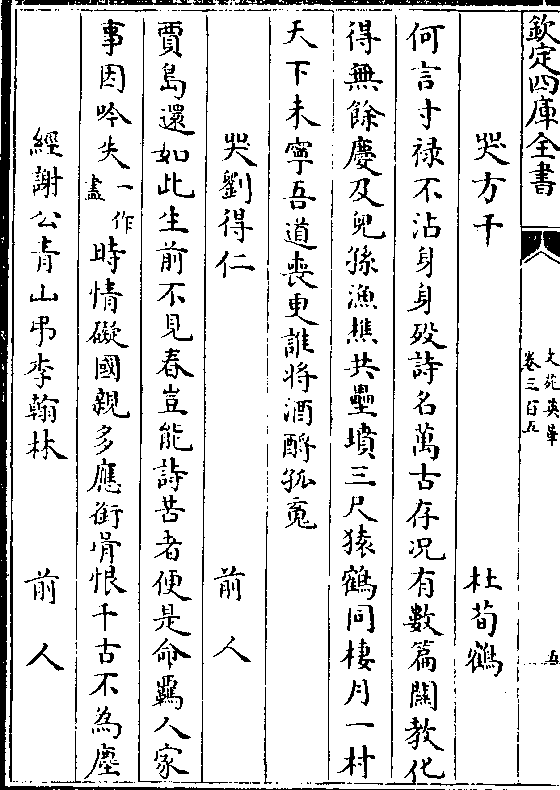 欽定四庫全書
文苑英華
卷三百五
五
哭方干 杜荀鶴
何言寸禄不沾身身殁詩名萬古存况有數篇關教化
得無餘慶及兒孫漁樵共壘墳三尺猿鶴同棲月一村
天下未寧吾道喪更誰將酒酹孤寃
哭劉得仁 前人
賈島還如此生前不見春豈能詩苦者便是命羈人家
事因吟失一作盡時情礙國親多應銜骨恨千古不為塵
經謝公青山弔李翰林 前人